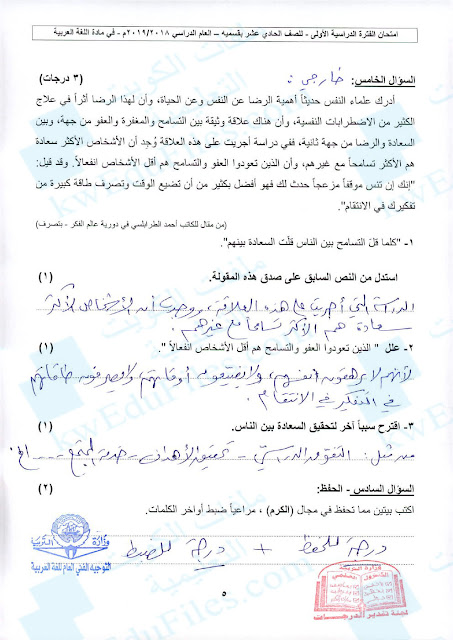 امتحان الفترة الدراسية الأولى - للصف الحادي عشر بقسميه - العام الدراسي ٢٠١٩/٢٠١٨م - في مادة اللغة العربية
السؤال الخامس: خارجي : (٣ درجات)
أدرك علماء النفس حديثاً أهمية الرضا عن النفس وعن الحياة، وأن لهذا الرضا أثراً في علاج
الكثير من الاضطرابات النفسية، وأن هناك علاقة وثيقة بين التسامح والمغفرة والعفو من جهة، وبين
السعادة والرضا من جهة ثانية، ففي دراسة أجريت على هذه العلاقة وُجد أن الأشخاص الأكثر سعادة
هم الأكثر تسامحاً مع غيرهم، وأن الذين تعودوا العفو والتسامح هم أقل الأشخاص انفعالاً. وقد قيل:
"إنك إن تنس موقفاً مزعجاً حدث لك فهو أفضل بكثير من أن تضيع الوقت وتصرف طاقة كبيرة من
تفكيرك في الانتقام."
(من مقال للكاتب أحمد الطرابلسي في دورية عالم الفكر - بتصرف)
١- "كلما قل التسامح بين الناس قلّت السعادة بينهم".
استدل من النص السابق على صدق هذه المقولة. (١)
الدراسة التي أجريت على هذه العلاقة، ووجدت أن الأشخاص الأكثر
سعادة هم الأكثر تسامحاً مع غيرهم .
٢- علل " الذين تعودوا العفو والتسامح هم أقل الأشخاص انفعالاً ". (١)
لأنهم لا يرهقون أنفسهم، ولا يضيعون أوقاتهم، ولا يصرفون طاقاتهم
في التفكير في الانتقام .
٣- اقترح سبباً آخر لتحقيق السعادة بين الناس. (١)
من مثل: التفوق الدراسي - تحقيق الأهداف - خدمة المجتمع - ... الخ
السؤال السادس - الحفظ: (٢)
اكتب بيتين مما تحفظ في مجال (الكرم) ، مراعياً ضبط أواخر الكلمات.
درجة للحفظ + درجة للضبط
وزارة التربية
التوجيه الفني العام للغة العربية
وزارة التربية
لجنة تقدير الدرجات
٥
kwEduFiles.Com